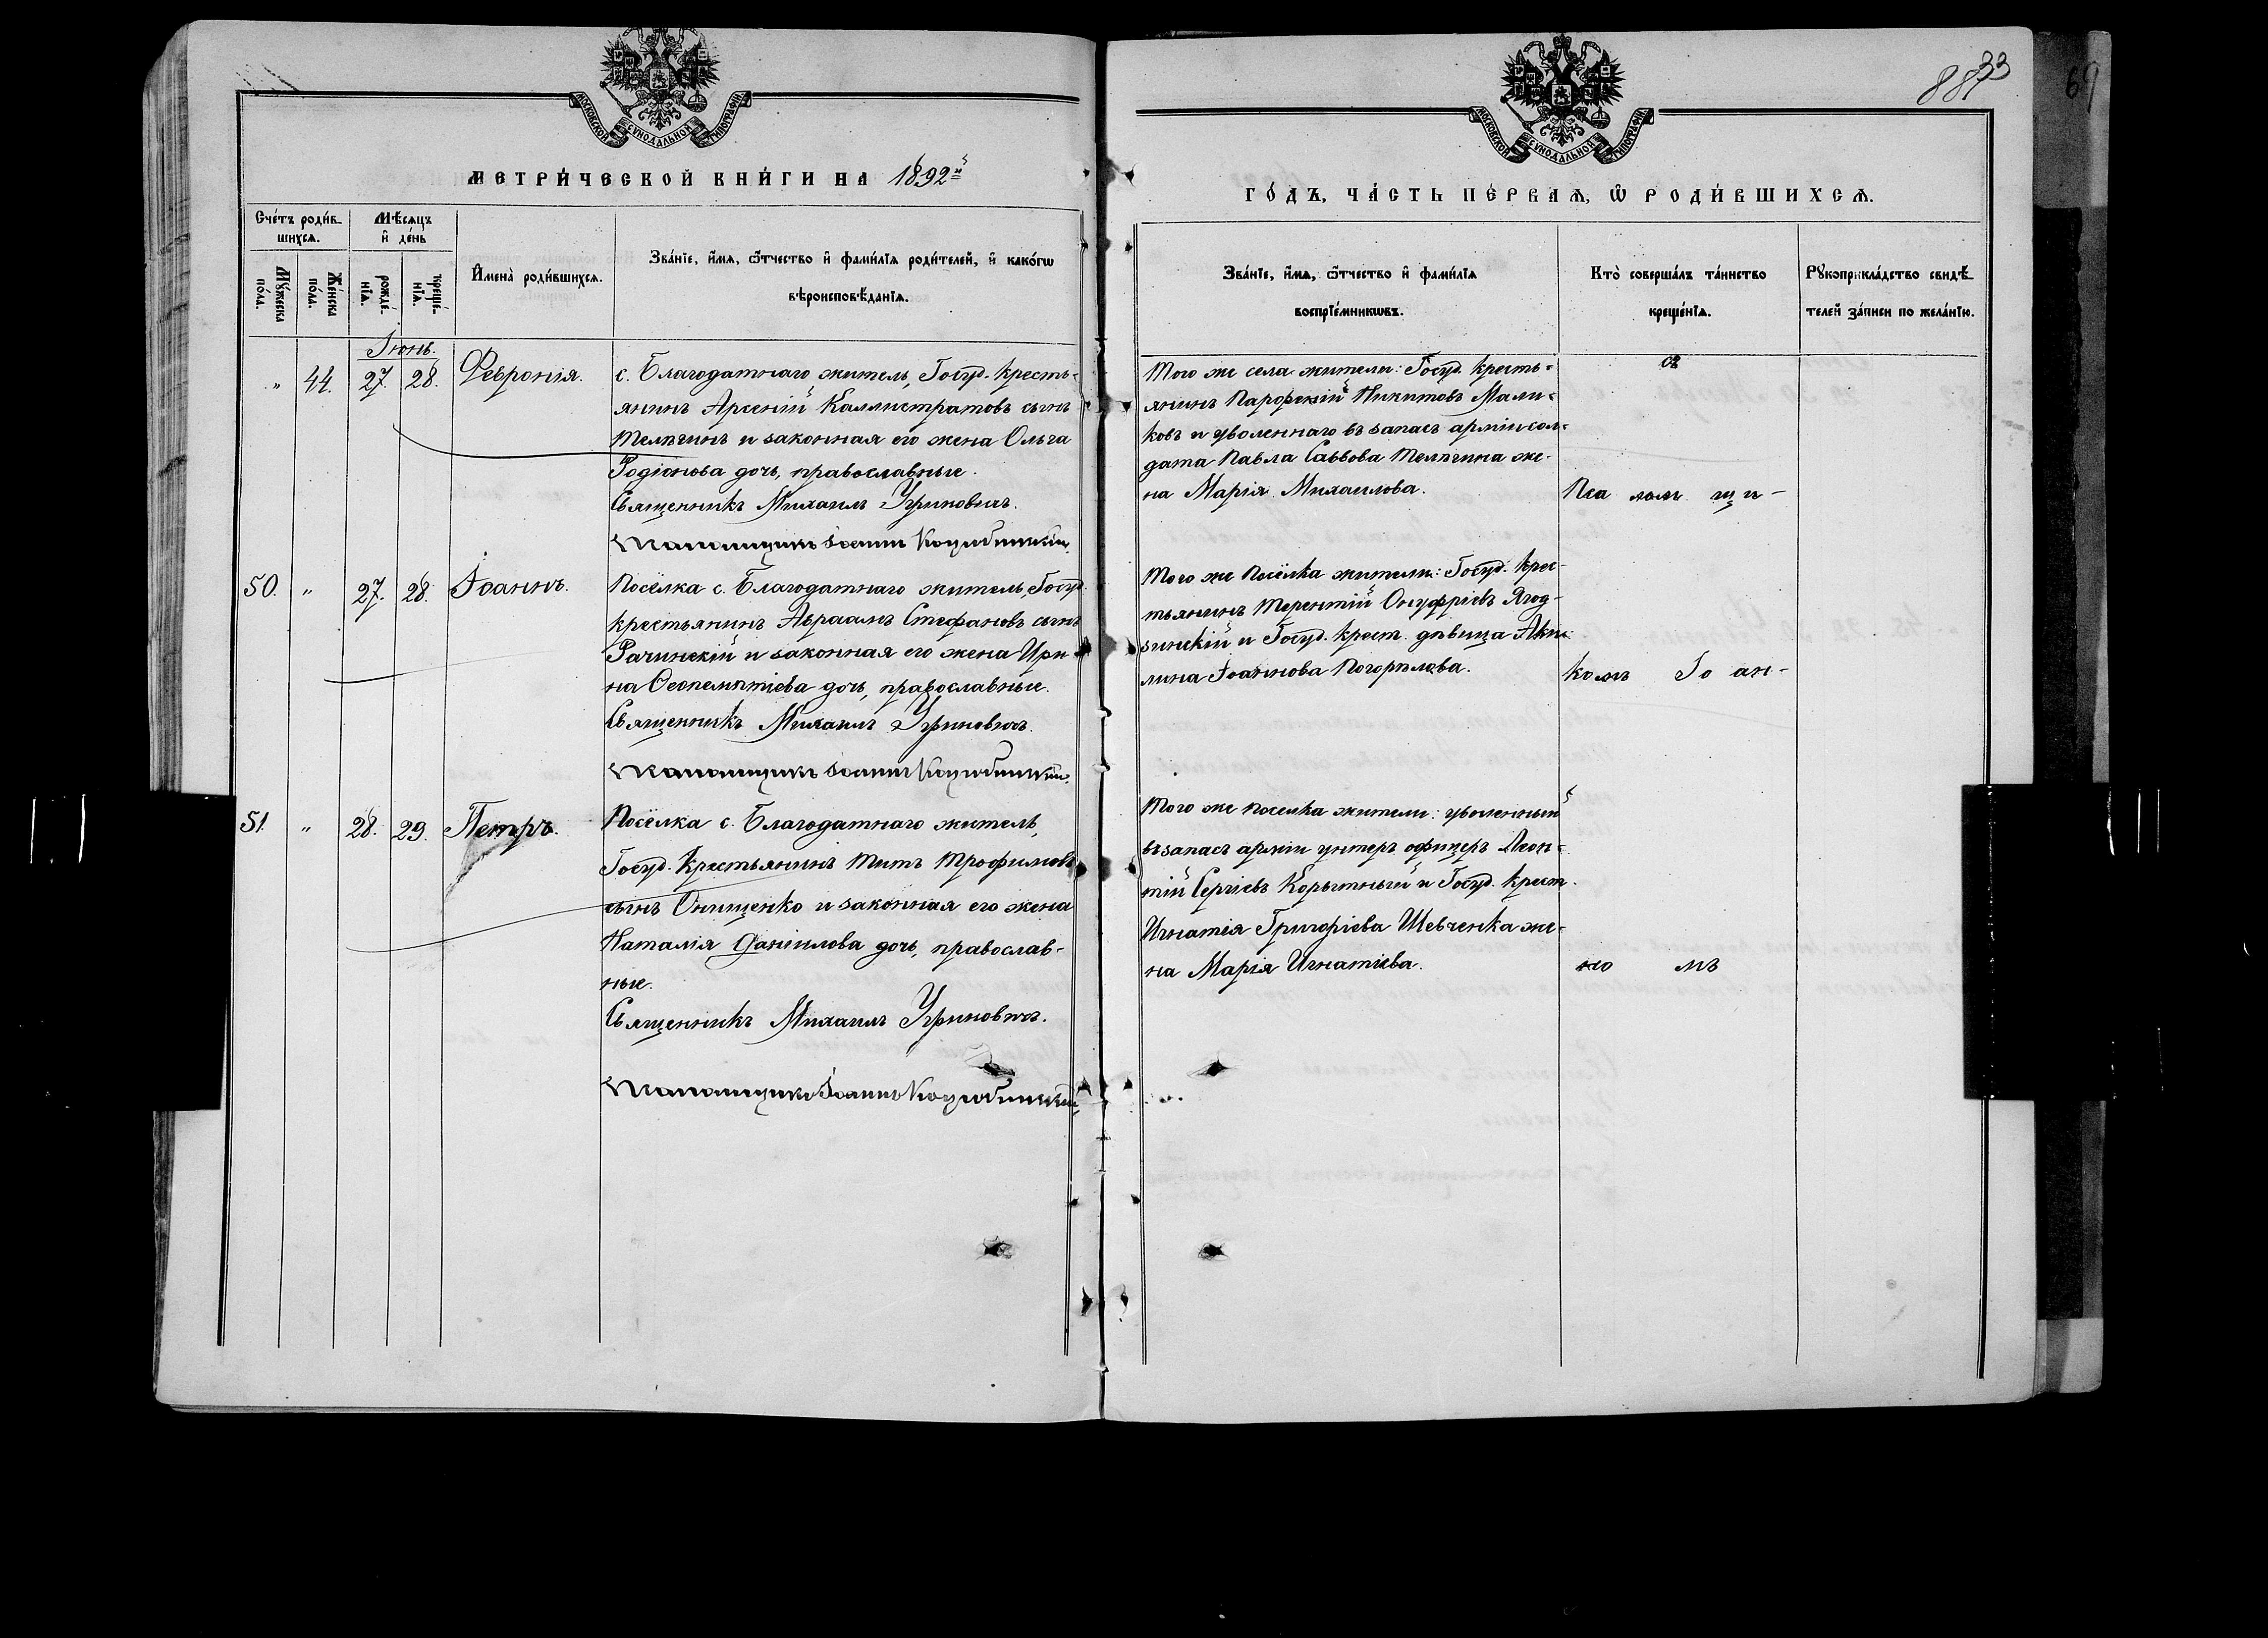 МОСКОВСКОЙ СѴНОДАЛЬНОЙ ТИПОГРАФІИ
МЕТРИ́ЧЕСКОЙ КНИ́ГИ НА 1892й
Сче́тъ роди́в-
шихсѧ.
Мꙋ́жеска
по́ла.
Же́нска
по́ла.
Мѣ́сяцъ
и҆ де́нь
рожде́-
нїѧ.
креще́-
нїѧ.
И҆мена̀ роди́вшихсѧ.
Зва́нїе, и҆́мѧ, ѻ҆́тчество и҆ фами́лїѧ роди́телей, и҆ како́гѡ
вѣроисповѣ́данїѧ.
Іюнь.
„ 44. 27. 28. Февронія.
с. Благодатнаго житель, Госуд. кресть-
янинъ Арсеній Каллистратовъ сынъ
Телѣгинъ и законная его жена Ольга
Родіонова дочь, православные.
Священникъ Михаилъ Угриновичъ.
Псаломщикъ Іоаннъ
50. „ 27. 28. Іоаннъ.
Посёлка с. Благодатнаго житель, Госуд.
крестьянинъ Авраамъ Стефановъ сынъ
Рачинскій и законная его жена Ири-
на Ѳеопемптіева дочь, православные.
Священникъ Михаилъ Угриновичъ.
Псаломщикъ Іоаннъ
51. „ 28. 29. Петръ.
Посёлка с. Благодатнаго житель,
Госуд. крестьянинъ Титъ Трофимовъ
сынъ Онищенко и законная его жена
Наталія Даніилова дочь, православ-
ные.
Священникъ Михаилъ Угриновичъ.
Псаломщикъ Іоаннъ
33
88
69
МОСКОВСКОЙ СѴНОДАЛЬНОЙ ТИПОГРАФІИ
ГО́ДЪ, ЧА́СТЬ ПЕ́РВАѦ, Ѡ҆ РОДИ́ВШИХСѦ.
Зва́нїе, и҆́мѧ, ѻ҆́тчество и҆ фами́лїѧ
воспрїе́мникѡвъ.
Кто̀ соверша́лъ та́инство
креще́нїѧ.
Рꙋкоприкла́дство свидѣ́-
телей за́писи по жела́нїю.
Того же села жители: Госуд. кресть-
янинъ Парфеній Никитовъ Мали-
ковъ и уволеннаго въ запасъ арміи сол-
дата Павла Саввова Телѣгина же-
на Марія Михаилова.
съ
Пса ломъ щи-
Того же посёлка жители: Госуд. крес-
тьянинъ Терентій Онуфріевъ Ягод-
зинскій и Госуд. крест. дѣвица Аки-
лина Іоаннова Погорѣлова.
комъ Іо ан-
Того же поселка жители: уволенный
въ запасъ арміи унтеръ офицеръ Леон-
тій Сергіевъ Корытный и Госуд. крест.
Игнатія Григоріева Шевченка же-
на Марія Игнатіева.
но мъ